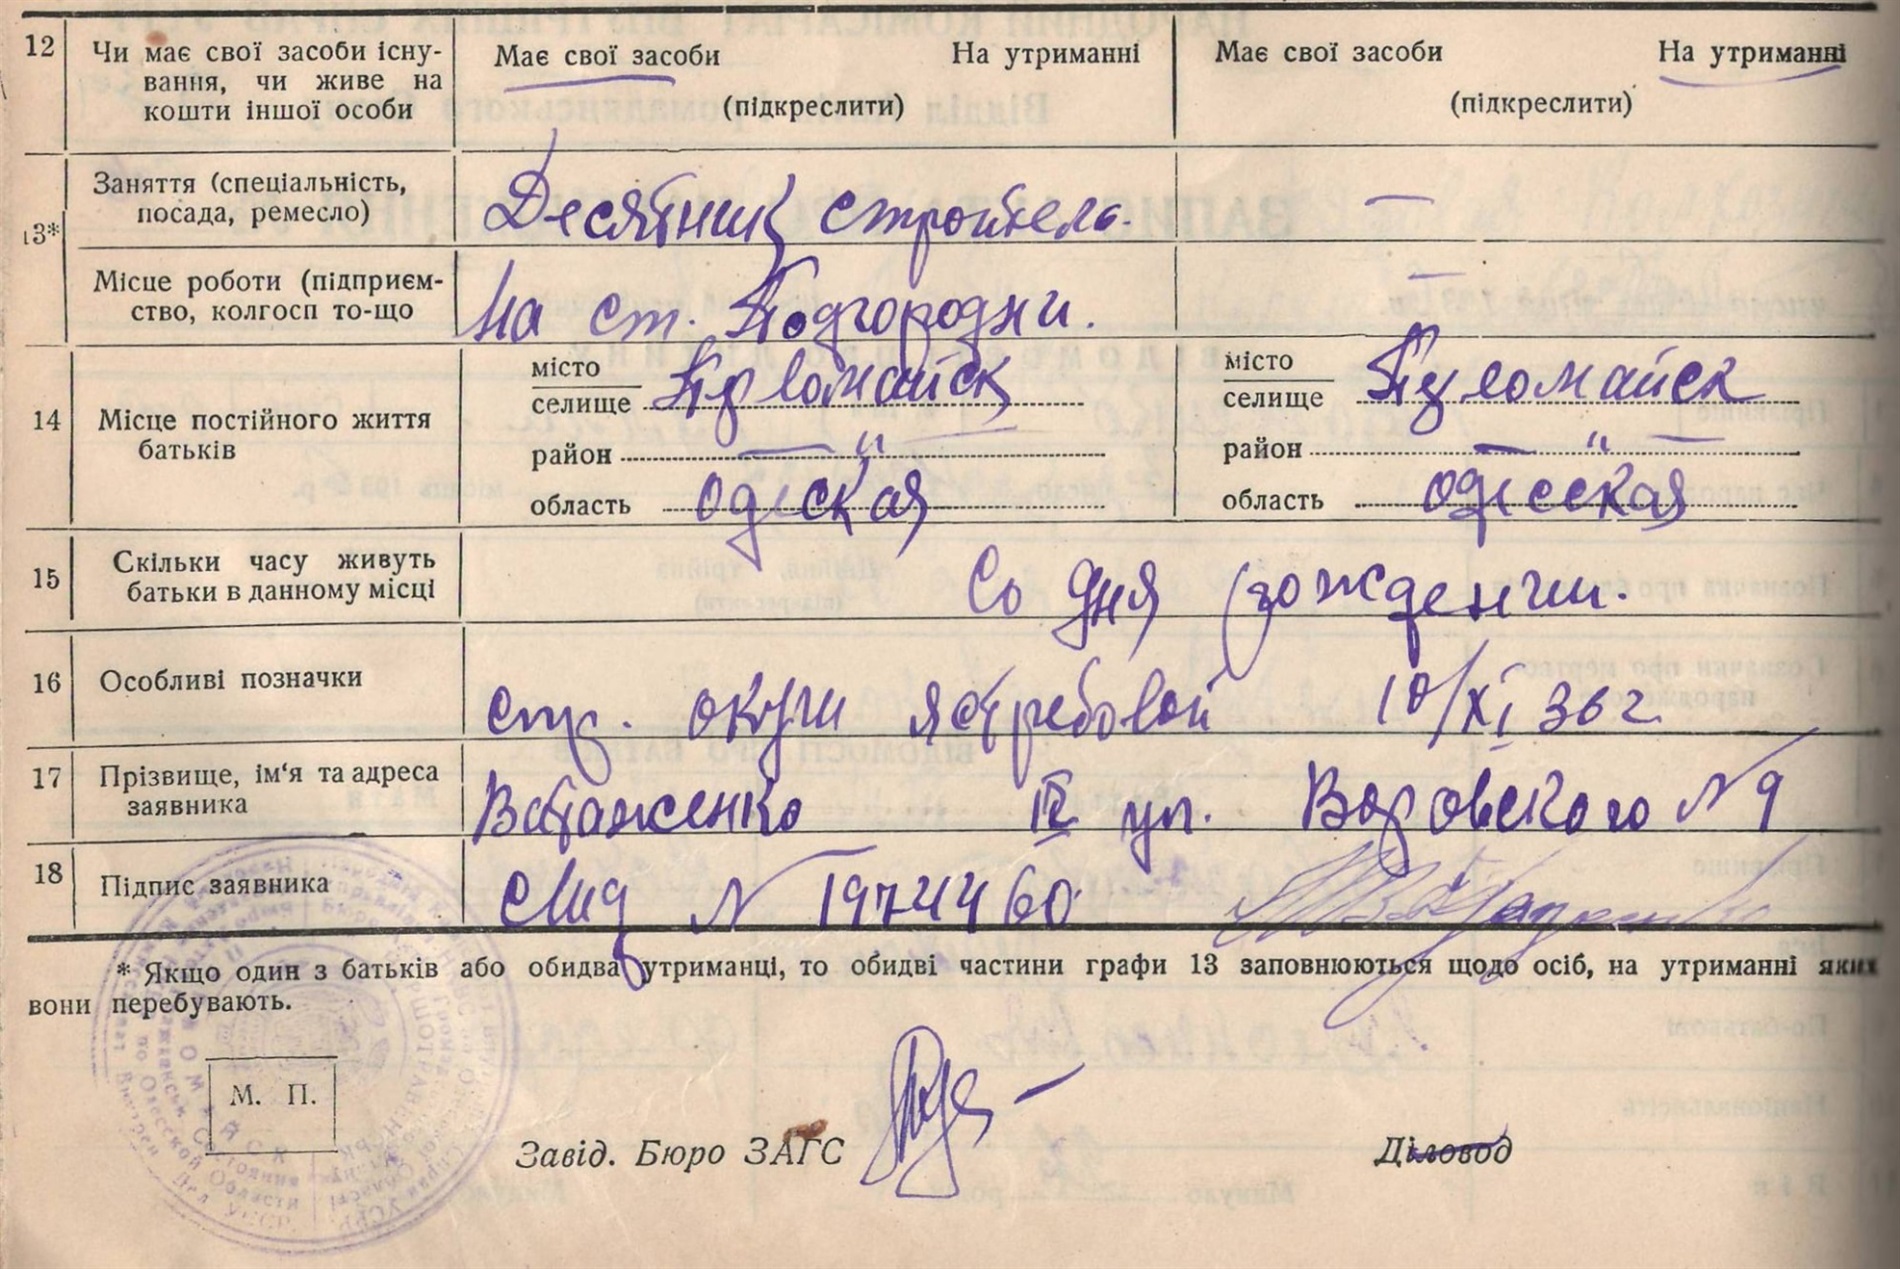 12 Чи має свої засоби існу- Має свої засоби На утриманні Має свої засоби На утриманні
вання, чи живе на
кошти іншої особи (підкреслити) (підкреслити)
13* Заняття (спеціальність,
посада, ремесло) Десятник строитель. —
Місце роботи (підприєм-
ство, колгосп то-що На ст. Подгородни. —
14 Місце постійного життя
батьків
місто
селище Первомайск
район — " —
область одеская
місто
селище Первомайск
район — " —
область одесская
15 Скільки часу живуть
батьки в данному місці Со дня рождении.
16 Особливі позначки стр. окуш ястребовой 10/XI 36 г.
17 Прізвище, ім'я та адреса
заявника Ватаженко ул. Воровского № 9
18 Підпис заявника №
* Якщо один з батьків або обидва утриманці, то обидві частини графи 13 заповнюються щодо осіб, на утриманні яких
вони перебувають.
М. П.
Завід. Бюро ЗАГС Діловод